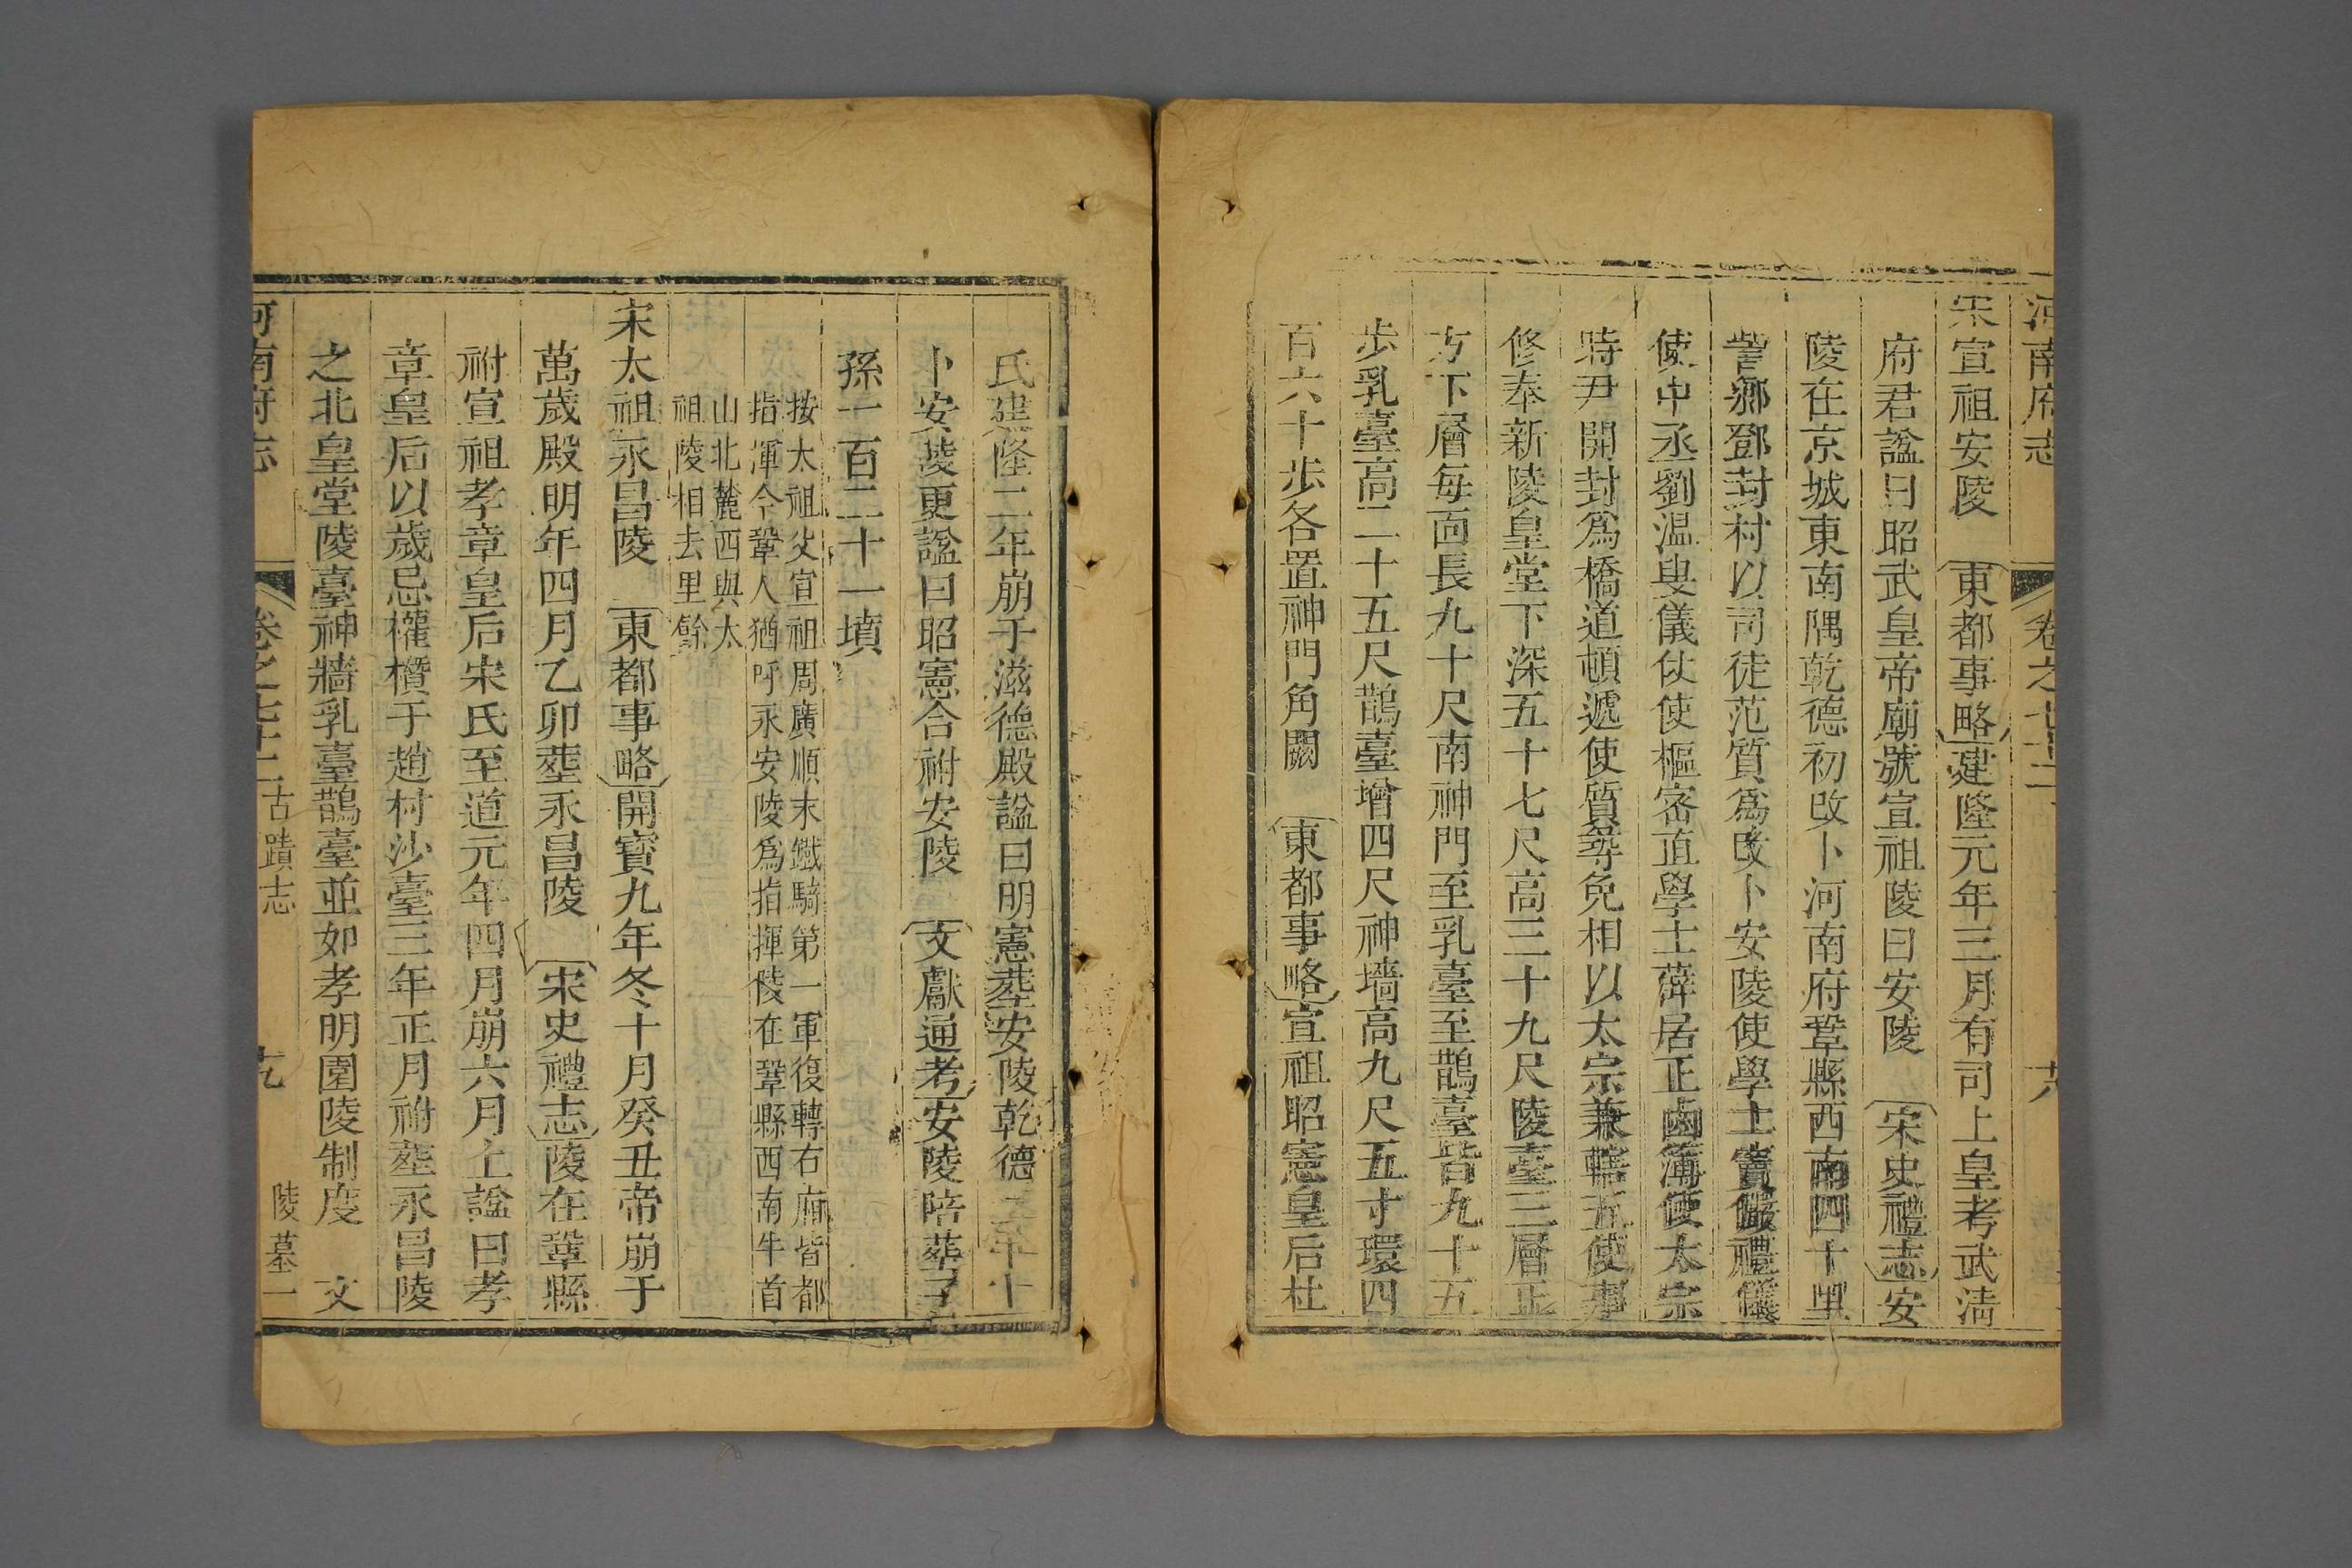 河南府志 卷之七十二 十八
宋宣祖安陵 東都事略建隆元年三月有司上皇考武清
府君諡曰昭武皇帝廟號宣祖陵曰安陵 宋史禮志安
陵在京城東南隅乾德初改卜河南府鞏縣西南四十里
訾鄉鄧封村以司徒范質爲改卜安陵使學士竇儼禮儀
使中丞劉温叟儀仗使樞密直學士薛居正鹵簿使太宗
時尹開封爲橋道頓遞使質尋免相以太宗兼轄五使事
修奉新陵皇堂下深五十七尺高三十九尺陵臺三層正
方下層每面長九十尺南神門至乳臺至鵲臺皆九十五
步乳臺高二十五尺鵲臺增四尺神墻高九尺五寸環四
百六十步各置神門角闕 東都事略宣祖昭憲皇后杜
氏建隆二年崩于滋德殿諡曰明憲葬安陵乾德二年十
卜安陵更諡曰昭憲合祔安陵 文獻通考安陵陪葬子
孫一百二十一墳
按太祖父宣祖周廣順末鐵騎第一軍復轉右廂皆都
指渾今鞏人猶呼永安陵爲指揮陵在鞏縣西南牛首
山北麓西與太
祖陵相去里餘
宋太祖永昌陵 東都事略開寶九年冬十月癸丑帝崩于
萬歲殿明年四月乙卯葬永昌陵 宋史禮志陵在鞏縣
祔宣祖孝章皇后宋氏至道元年四月崩六月上諡曰孝
章皇后以歲忌權欑于趙村沙臺三年正月祔葬永昌陵
之北皇堂陵臺神牆乳臺鵲臺並如孝明園陵制度 文
河南府志 卷之七十二 古蹟志 十九 陵墓一